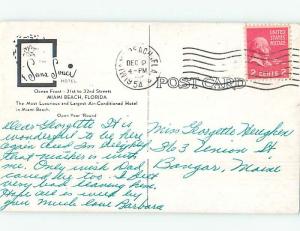 THE
Sans Souci
HOTEL
Ocean Front - 31st to 32nd Streets
MIAMI BEACH, FLORIDA
The Most Luxurious and Largest Air-Conditioned Hotel
in Miami Beach.
Open Year 'Round
MIAMI BEACH, FLA.
DEC 9
4-PM
1954
POST CARD
UNITED STATES POSTAGE
2 CENTS 2
Dear Georgette It is
wonderful to be here
again and I'm delighted
that mother is with
me. Only wish Dad
could by too. I felt
very bad leaving him.
Hope all is well by
you Much love Barbara
Miss Georgette
363 Union St
Bangor, Maine